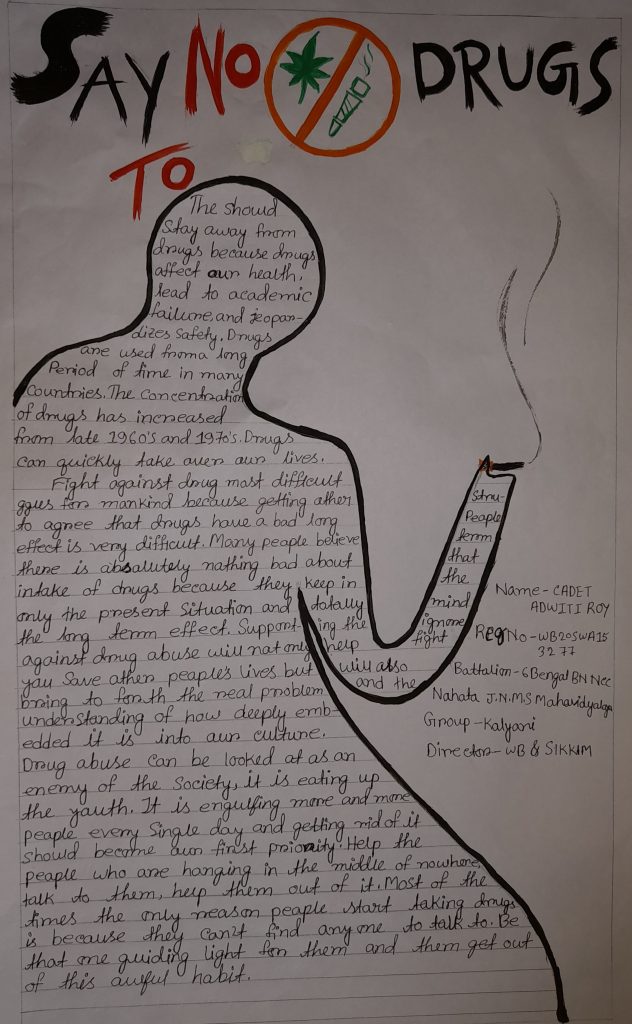 SAY NO DRUGS
TO
The should
stay away from
drugs because drugs
affect our health,
lead to academic
failure, and jeopar-
dizes safety. Drugs
are used from a long
Period of time in many
Countries. The Concentration
of drugs has increased
from late 1960's and 1970's. Drugs
can quickly take over our lives.
Fight against drug most difficult Stru-
ggues for mankind because getting other People
to agree that drugs have a bad long term
effect is very difficult. Many people believe that
there is absolutely nothing bad about the
intake of drugs because they keep in mind
only the present Situation and totally ignore
the long term effect. Support- ing the fight
against drug abuse will not only help
you save other people's lives but will also
bring to forth the real problem and the
understanding of how deeply emb-
edded it is into our culture.
Drug abuse can be looked at as an
enemy of the Society, it is eating up
the youth. It is engulfing more and more
people every Single day and getting rid of it
should become our first priority. Help the
people who are hanging in the middle of nowhere,
talk to them, help them out of it. Most of the
times the only reason people start taking drugs
is because they can't find anyone to talk to. Be
that one guiding light for them and them get out
of this awful habit.
Name - CADET
ADWITI ROY
Reg No - WB20SWA15
3277
Battalion - 6 Bengal BN NCC
Nahata J.N.M.S Mahavidyalya
Group - Kalyani
Director - WB & SIKKIM